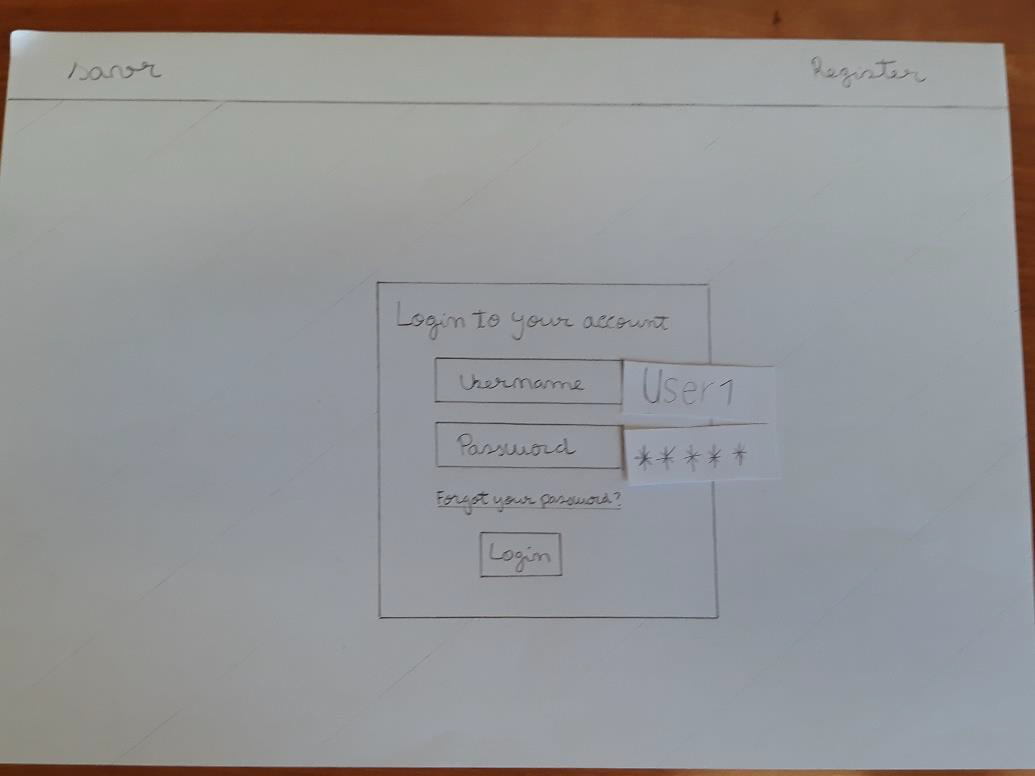 savr Register
Login to your account
Username User1
Password *****
Forgot your password?
Login